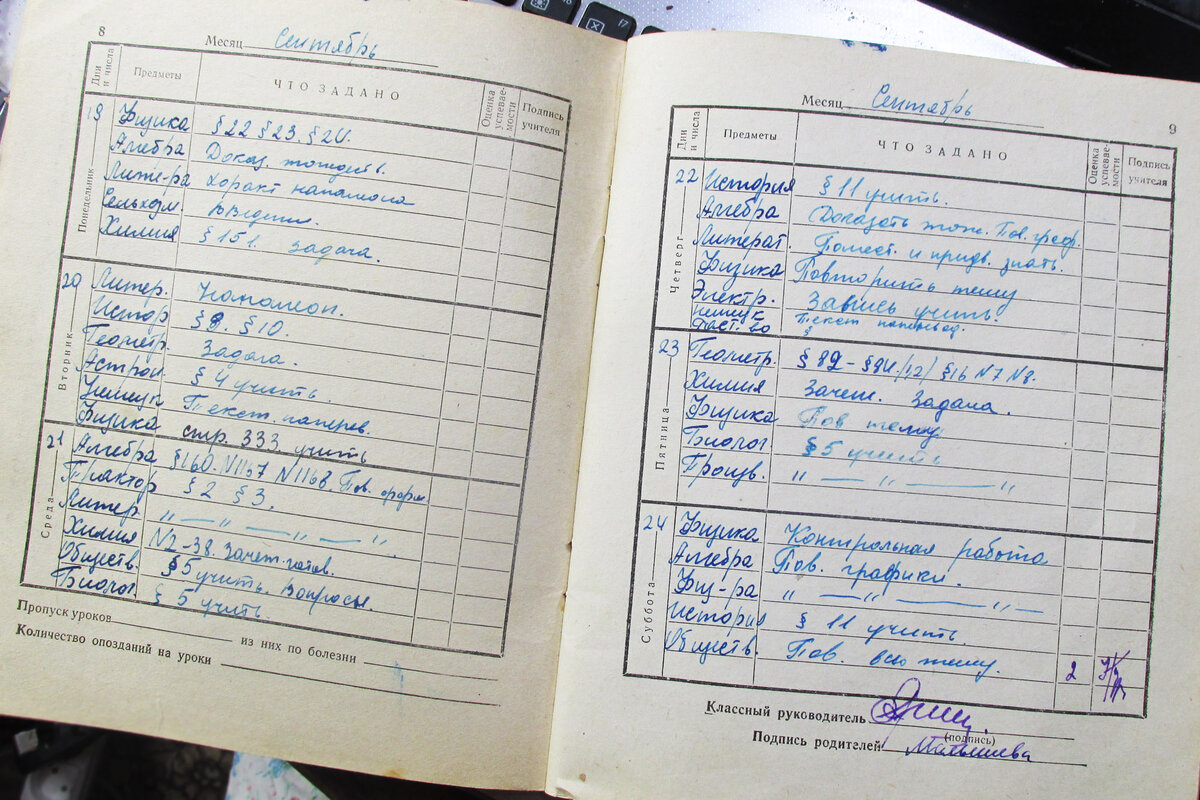 8
Месяц Сентябрь
Дни и числа Предметы ЧТО ЗАДАНО Оценка успеваемости Подпись учителя
Понедельник
19 Физика § 22 § 23. § 24.
Алгебра Доказ. тождеств.
Лит-ра Характ наполеона
Сельхоз.
Химия § 151. Задача.
Вторник
20 Литер. Наполеон.
Истор § 9. § 10.
Геометр. Задача.
Астрон § 4 учить.
Немецк Текст. наперев.
Физика стр. 333 учить
Среда
21 Алгебра § 160. N1167 N1168. Пов. форм
Трактор § 2 § 3.
Литер. " — " — " .
Химия N2-38. Зачет. готов.
Обществ. § 5 учить. Вопросы.
Биолог § 5 учить.
Пропуск уроков из них по болезни
Количество опозданий на уроки
9
Месяц Сентябрь
Дни и числа Предметы ЧТО ЗАДАНО Оценка успеваемости Подпись учителя
Четверг
22 История § 11 учить.
Алгебра Доказать тож. Пов. граф.
Литерат. Помест. и придв. знать.
Физика Повторить тему
Электр. учить.
Немецк Текст
Пятница
23 Геометр. § 82 - § 84. /12/ § 16 N7 N8.
Химия Зачет. Задача.
Физика Пов тему.
Биолог § 5 учить
Произв. " — " — "
Суббота
24 Физика Контрольная работа
Алгебра Пов. графики.
Физ-ра " — " — " —
История § 11 учить.
Обществ. Пов. всю тему. 2
Классный руководитель
(подпись)
Подпись родителей Малышева